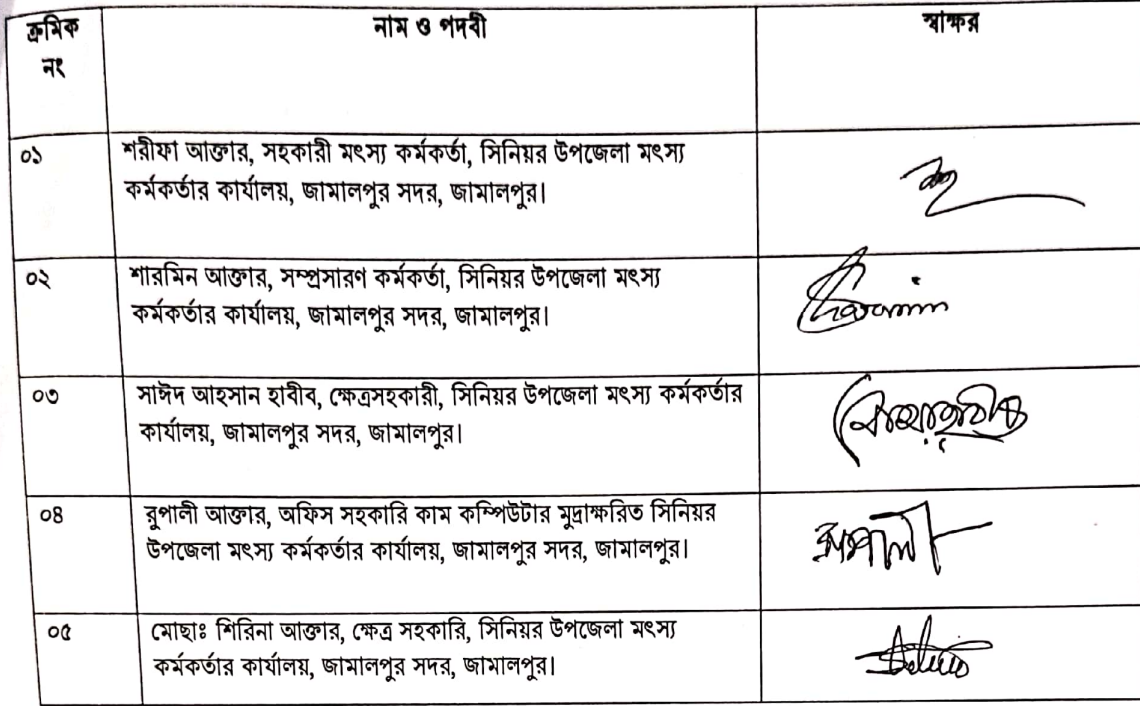 ক্রমিক নং
নাম ও পদবী
স্বাক্ষর
০১
শরীফা আক্তার, সহকারী মৎস্য কর্মকর্তা, সিনিয়র উপজেলা মৎস্য
কর্মকর্তার কার্যালয়, জামালপুর সদর, জামালপুর।
০২
শারমিন আক্তার, সম্প্রসারণ কর্মকর্তা, সিনিয়র উপজেলা মৎস্য
কর্মকর্তার কার্যালয়, জামালপুর সদর, জামালপুর।
Sharamin
০৩
সাঈদ আহসান হাবীব, ক্ষেত্রসহকারী, সিনিয়র উপজেলা মৎস্য কর্মকর্তার
কার্যালয়, জামালপুর সদর, জামালপুর।
০৪
রুপালী আক্তার, অফিস সহকারি কাম কম্পিউটার মুদ্রাক্ষরিত সিনিয়র
উপজেলা মৎস্য কর্মকর্তার কার্যালয়, জামালপুর সদর, জামালপুর।
রুপালী
০৫
মোছাঃ শিরিনা আক্তার, ক্ষেত্র সহকারি, সিনিয়র উপজেলা মৎস্য
কর্মকর্তার কার্যালয়, জামালপুর সদর, জামালপুর।